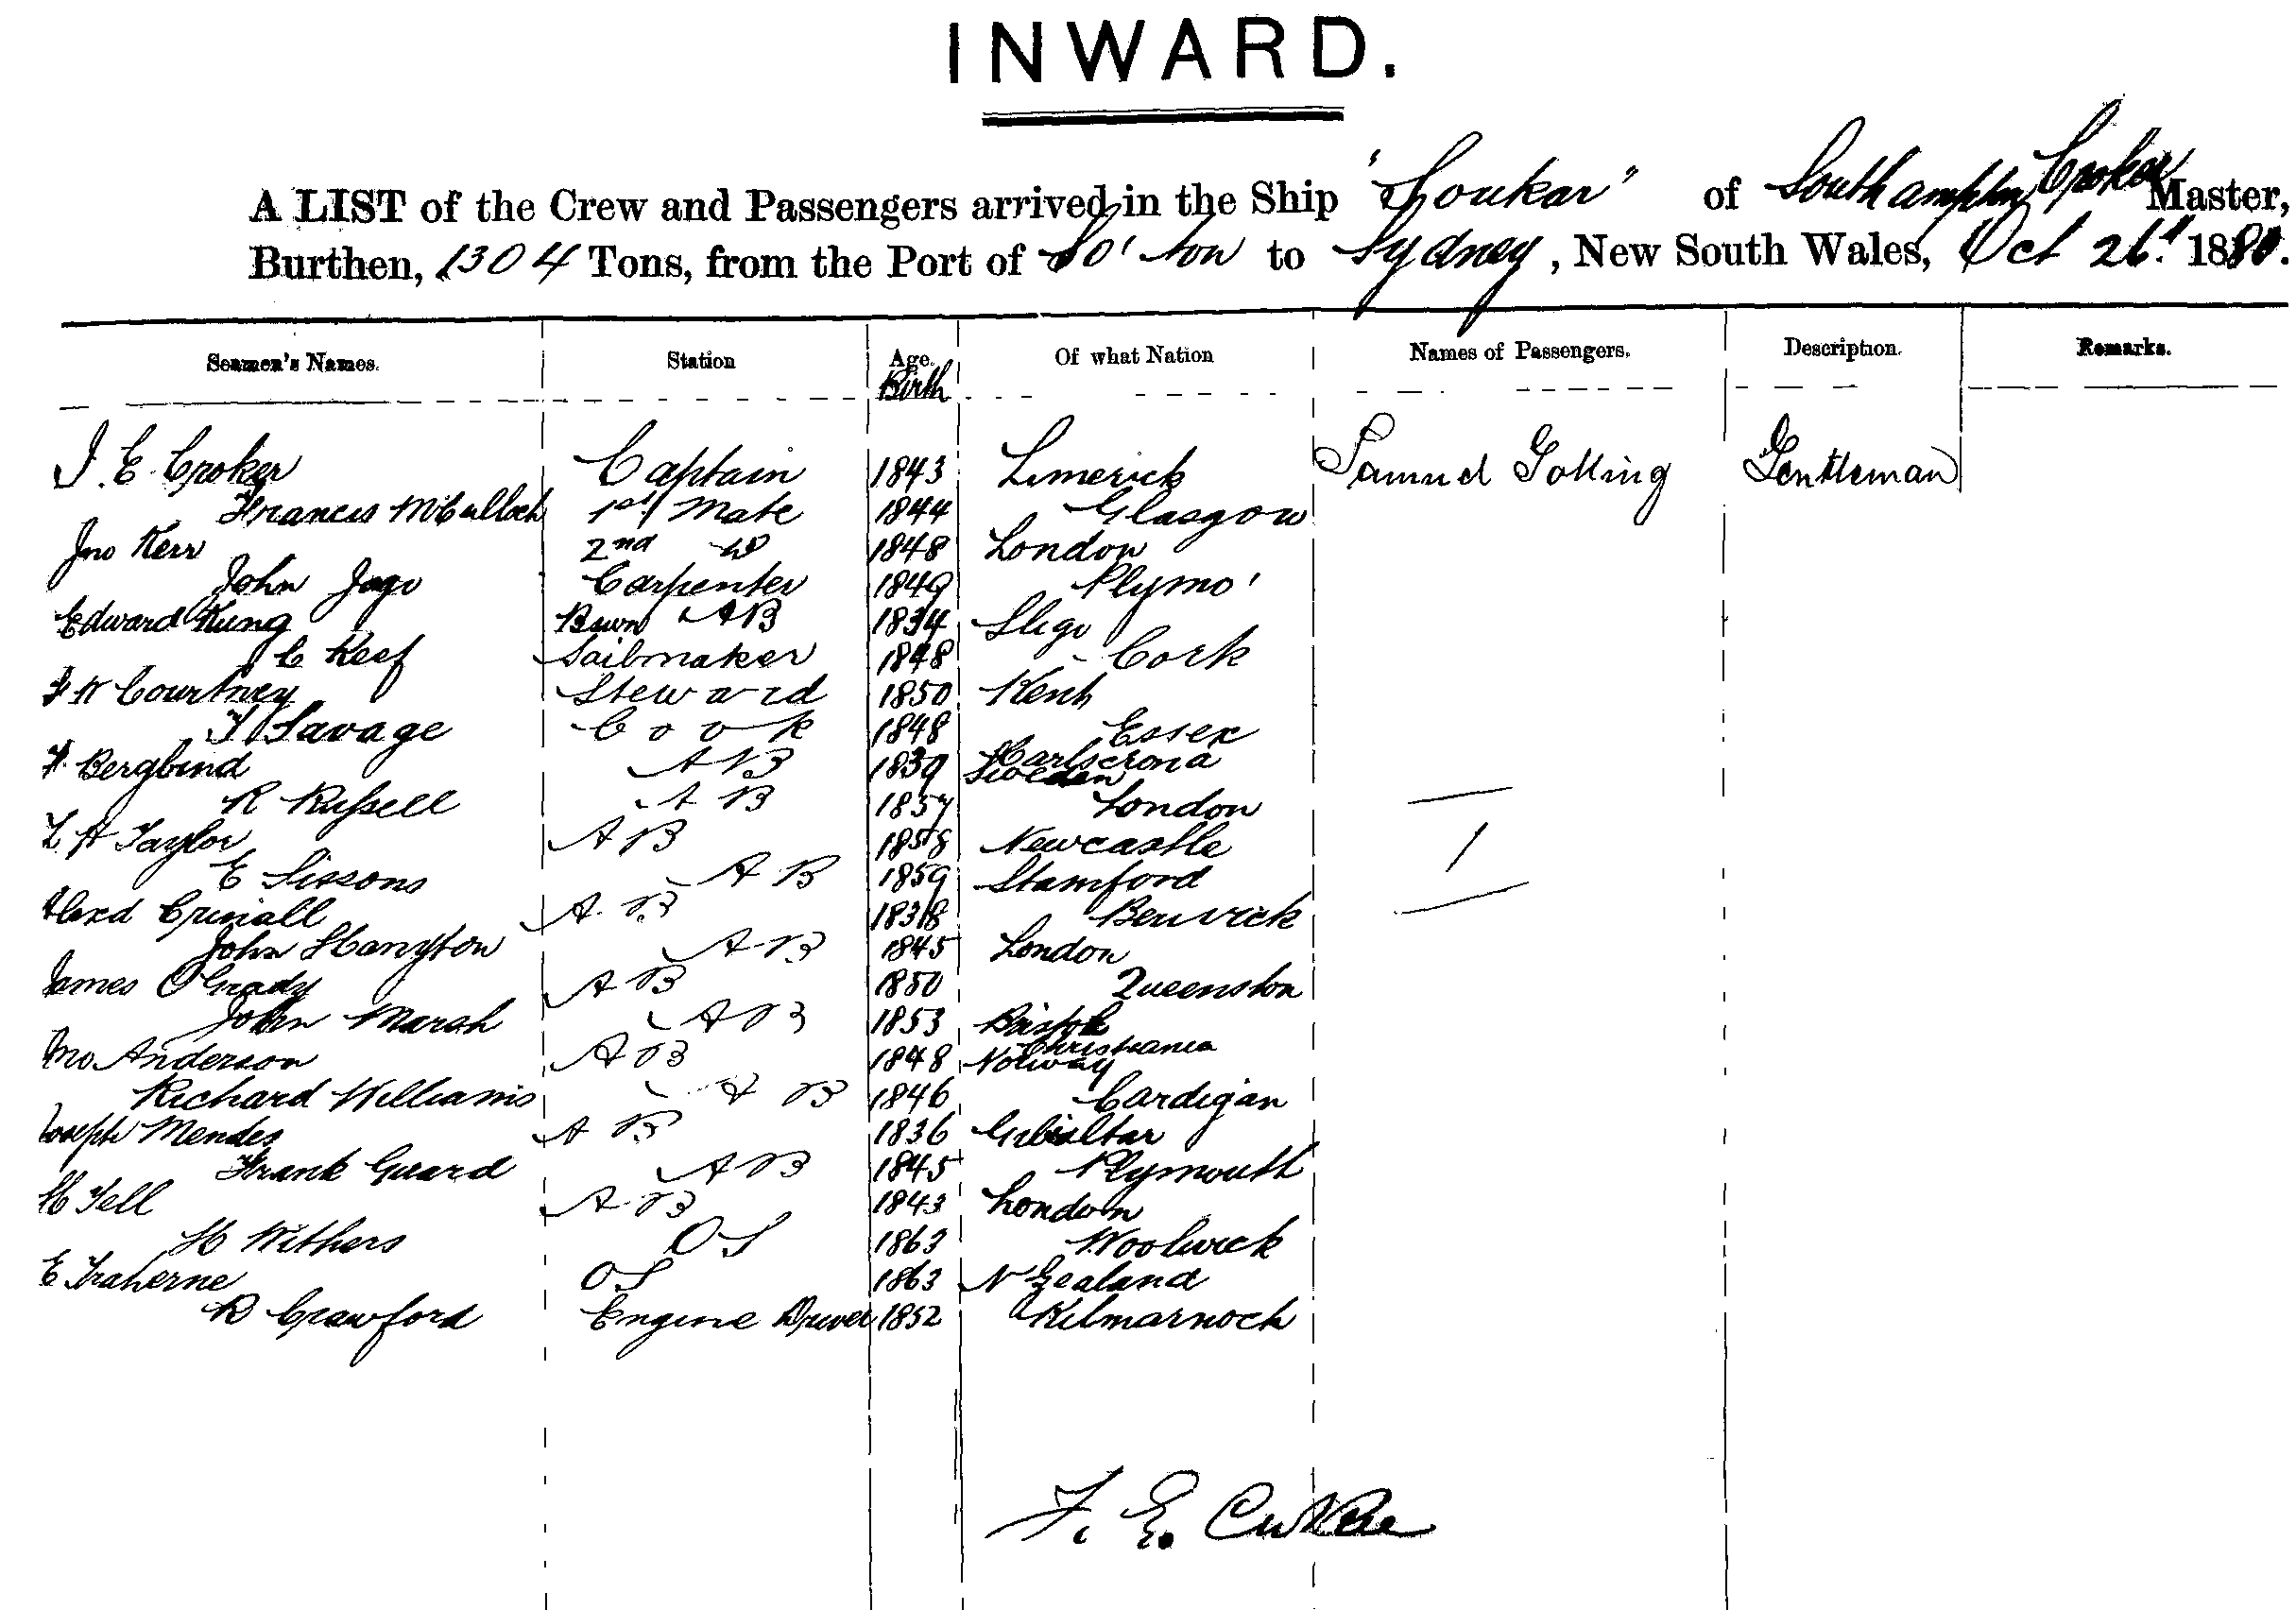 INWARD.
A LIST of the Crew and Passengers arrived in the Ship "Soukar" of Southampton Croker Master,
Burthen, 1304 Tons, from the Port of So'ton to Sydney, New South Wales, Oct 26th 1880.
Seamen's Names. Station Age. Of what Nation Names of Passengers. Description. Remarks.
Birth
J. E. Croker Captain 1843 Limerick Samuel Golling Gentleman
Francis McCulloch 1st Mate 1844 Glasgow
Jno Kerr 2nd Do 1848 London
John Jago Carpenter 1849 Plymo'
Edward Kung Bswn AB 1834 Sligo
C Keef Sailmaker 1848 Cork
F W Courtney Steward 1850 Kent
T Savage Cook 1848 Essex
F. Berglund AB 1839 Carlscrona Sweden
R Russell AB 1857 London
L H Taylor AB 1858 Newcastle
E Sissons AB 1859 Stamford 1
Alexd AB 1838 Berwick
John Hangton AB 1845 London
James O'Grady AB 1850 Queenston
John Marsh AB 1853 Bristol
Jno Anderson AB 1848 Christiania Norway
Richard Williams AB 1846 Cardigan
Joseph Mendes AB 1836 Gibraltar
Frank Guard AB 1845 Plymouth
H Tell AB 1843 London
H Withers OS 1863 Woolwick
E Traherne OS 1863 N Zealand
R Crawford Engine Driver 1852 Kilmarnock